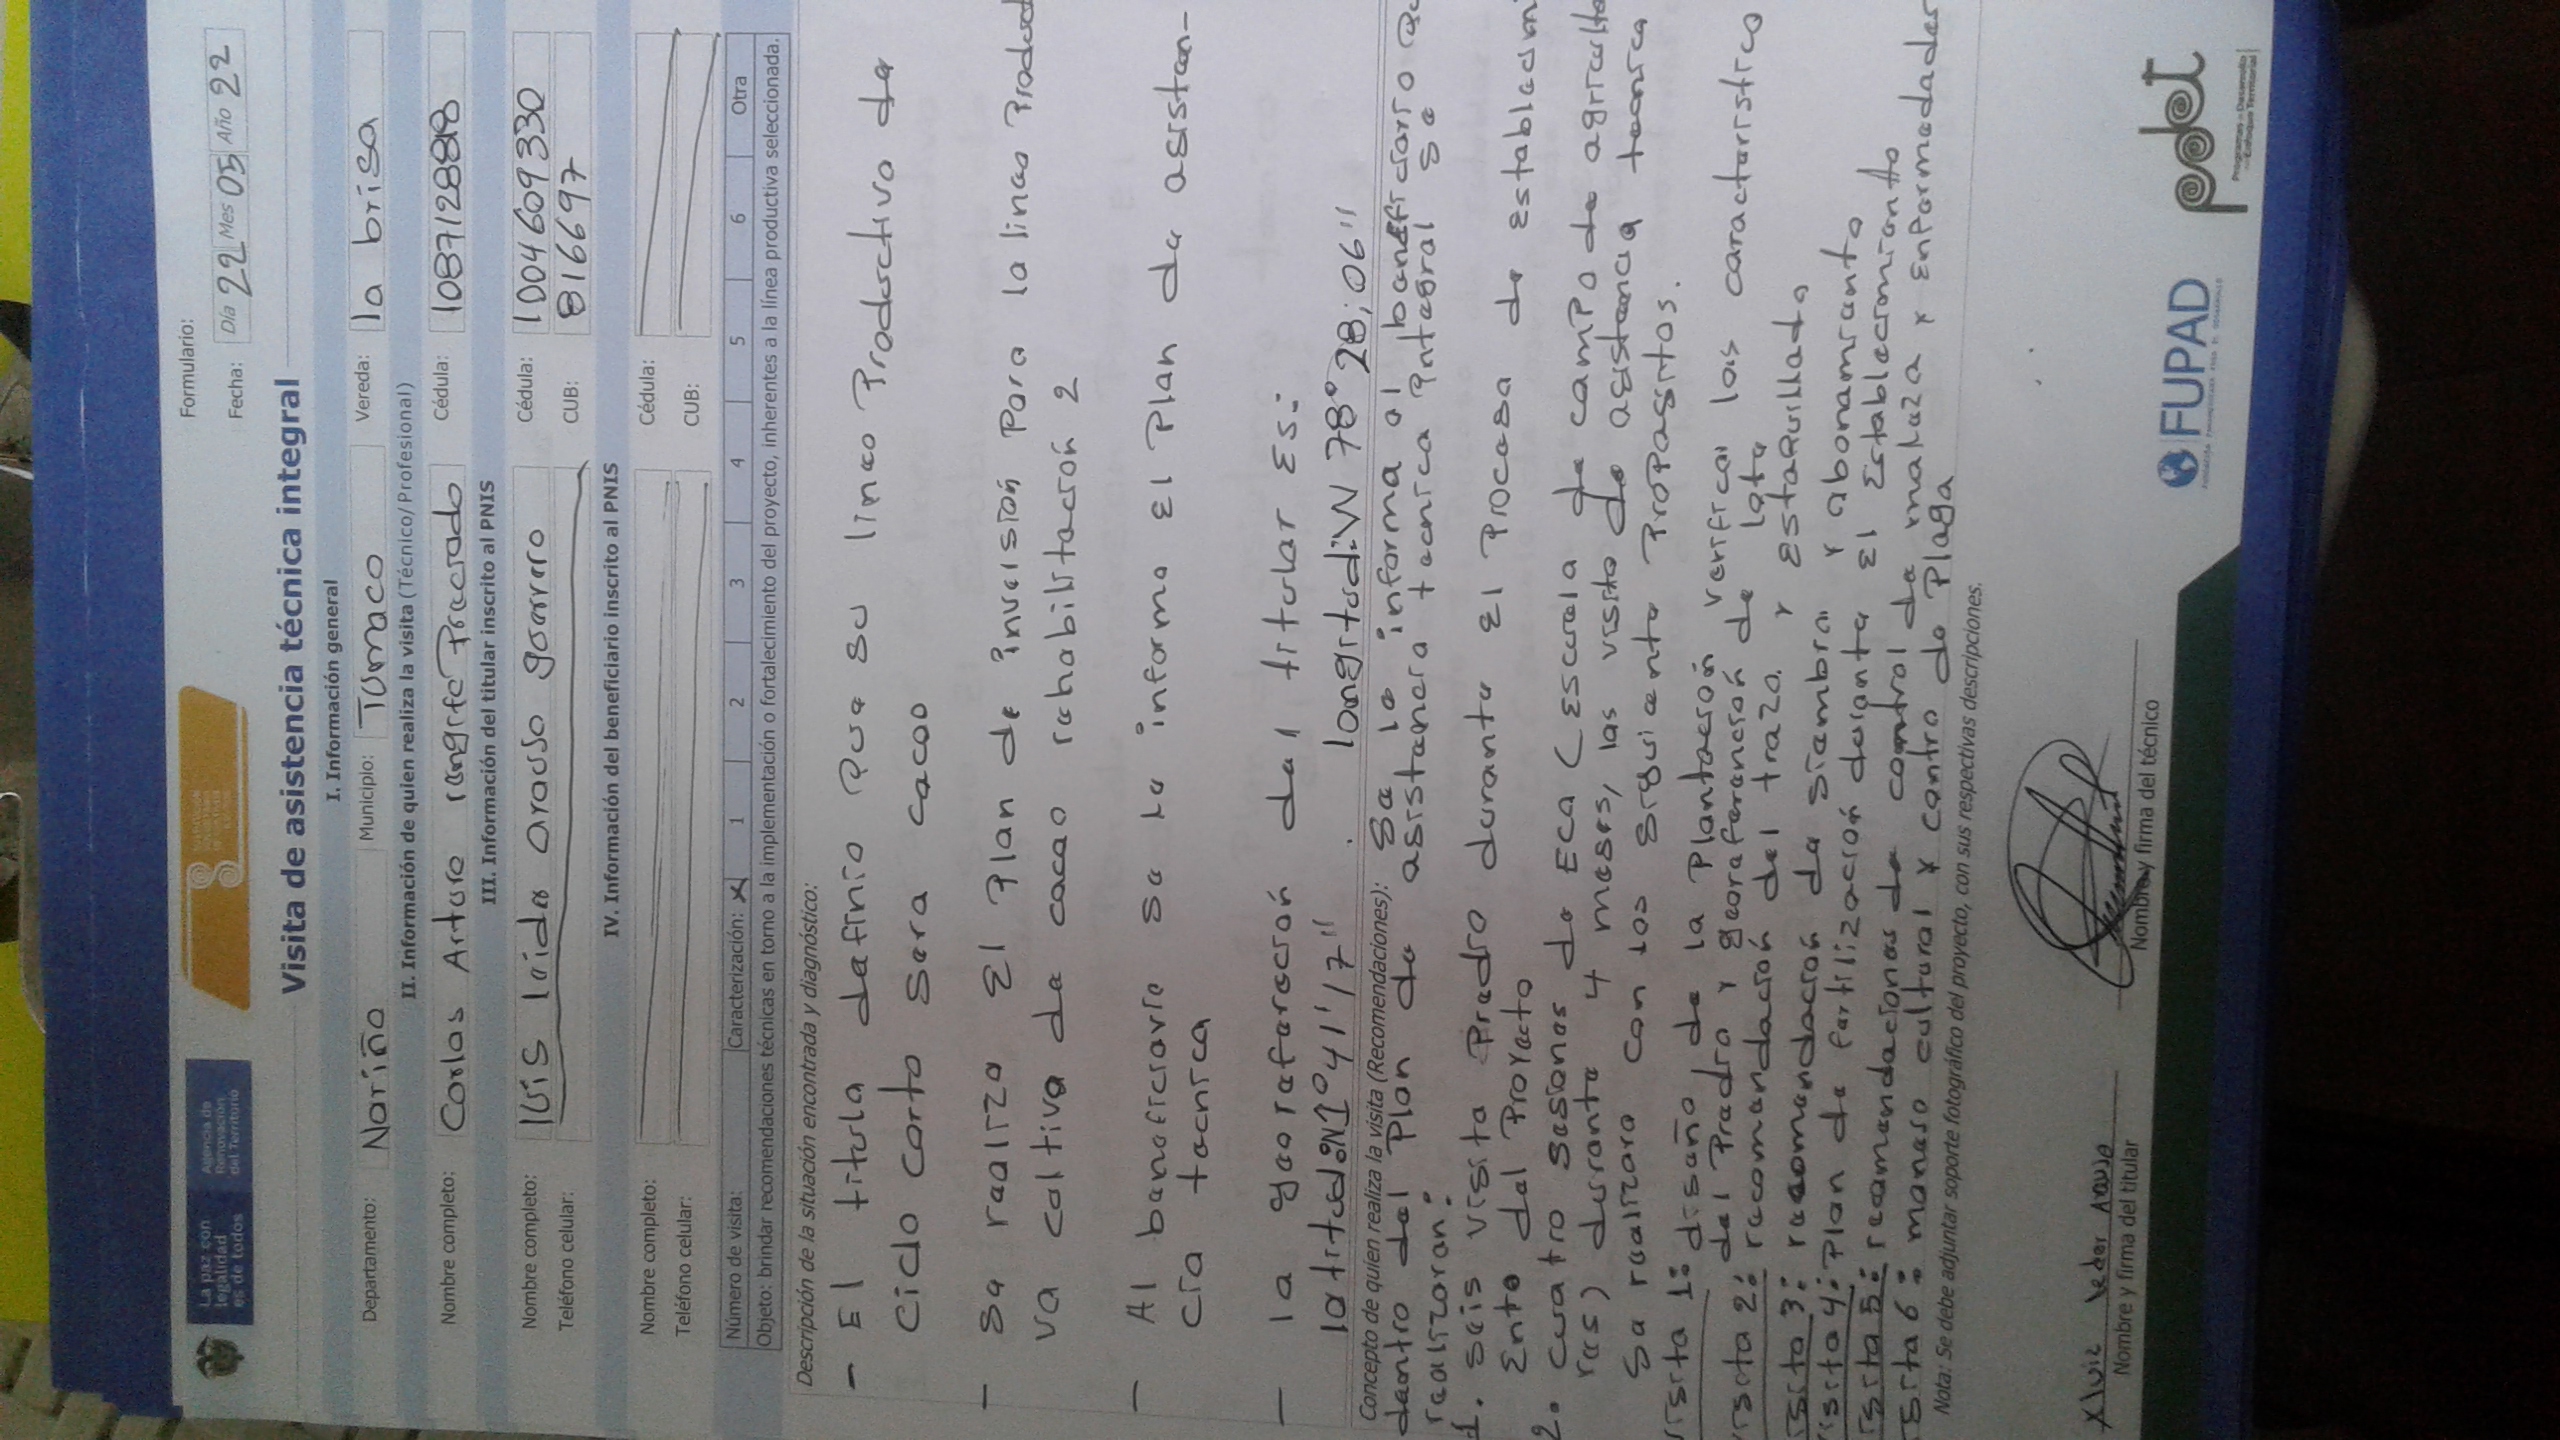 La paz con
legalidad
es de todos
Agencia de
Renovación
del Territorio
Formulario:
Fecha: Día 22 Mes 05 Año 22
Visita de asistencia técnica integral
I. Información general
Departamento: Nariño Municipio: Tumaco Vereda: la brisa
II. Información de quien realiza la visita (Técnico/ Profesional)
Nombre completo: Carlos Arturo rangife Preciado Cédula: 1087128818
III. Información del titular inscrito al PNIS
Nombre completo: luis laida arauso guerrero Cédula: 1004609330
Teléfono celular: CUB: 816697
IV. Información del beneficiario inscrito al PNIS
Nombre completo: Cédula:
Teléfono celular: CUB:
Número de visita: Caracterización: X 1 2 3 4 5 6 Otra
Objeto: brindar recomendaciones técnicas en torno a la implementación o fortalecimiento del proyecto, inherentes a la línea productiva seleccionada.
Descripción de la situación encontrada y diagnóstico:
- El titula definio que su linea Productiva de
ciclo corto sera cacao
- Se realizo El Plan de inversión Para la linea Product
va cultivo de cacao rehabilitación 2
- Al beneficiario se le informo El Plan de asisten-
cia tecnica
- la georeferación del titular Es:
latitud:N1°41'17" longitud:W 78° 28; 06"
Concepto de quien realiza la visita (Recomendaciones): Se le informa al beneficiario que
dentro del Plan de asistencia tecnica integral se
realizaran:
1. seis visita Predio durante El Proceso de establecimi
Ento del Proyecto
2. cuatro sesiones de ECA (Escuela de campo de agriculto
res) durante 4 meses, las visita de asistencia tecnica
Se realizara con los siguiente Propositos.
isita 1: diseño de la Plantación verificar las caracteristica
del Predio y georeferención de lote
isita 2: recomendación del trazo y Estaquillado
isita 3: recomendación de siembra y abonamiento
isita 4: Plan de fertilización durante El Establecimiento
isita 5: recomendaciones de control de maleza y Enfermedades
isita 6: manejo cultural y contro de Plaga
Nota: Se debe adjuntar soporte fotográfico del proyecto, con sus respectivas descripciones.
Nombre y firma del titular
Nombre y firma del técnico
FUPAD
pdet
Programas de Desarrollo
con Enfoque Territorial